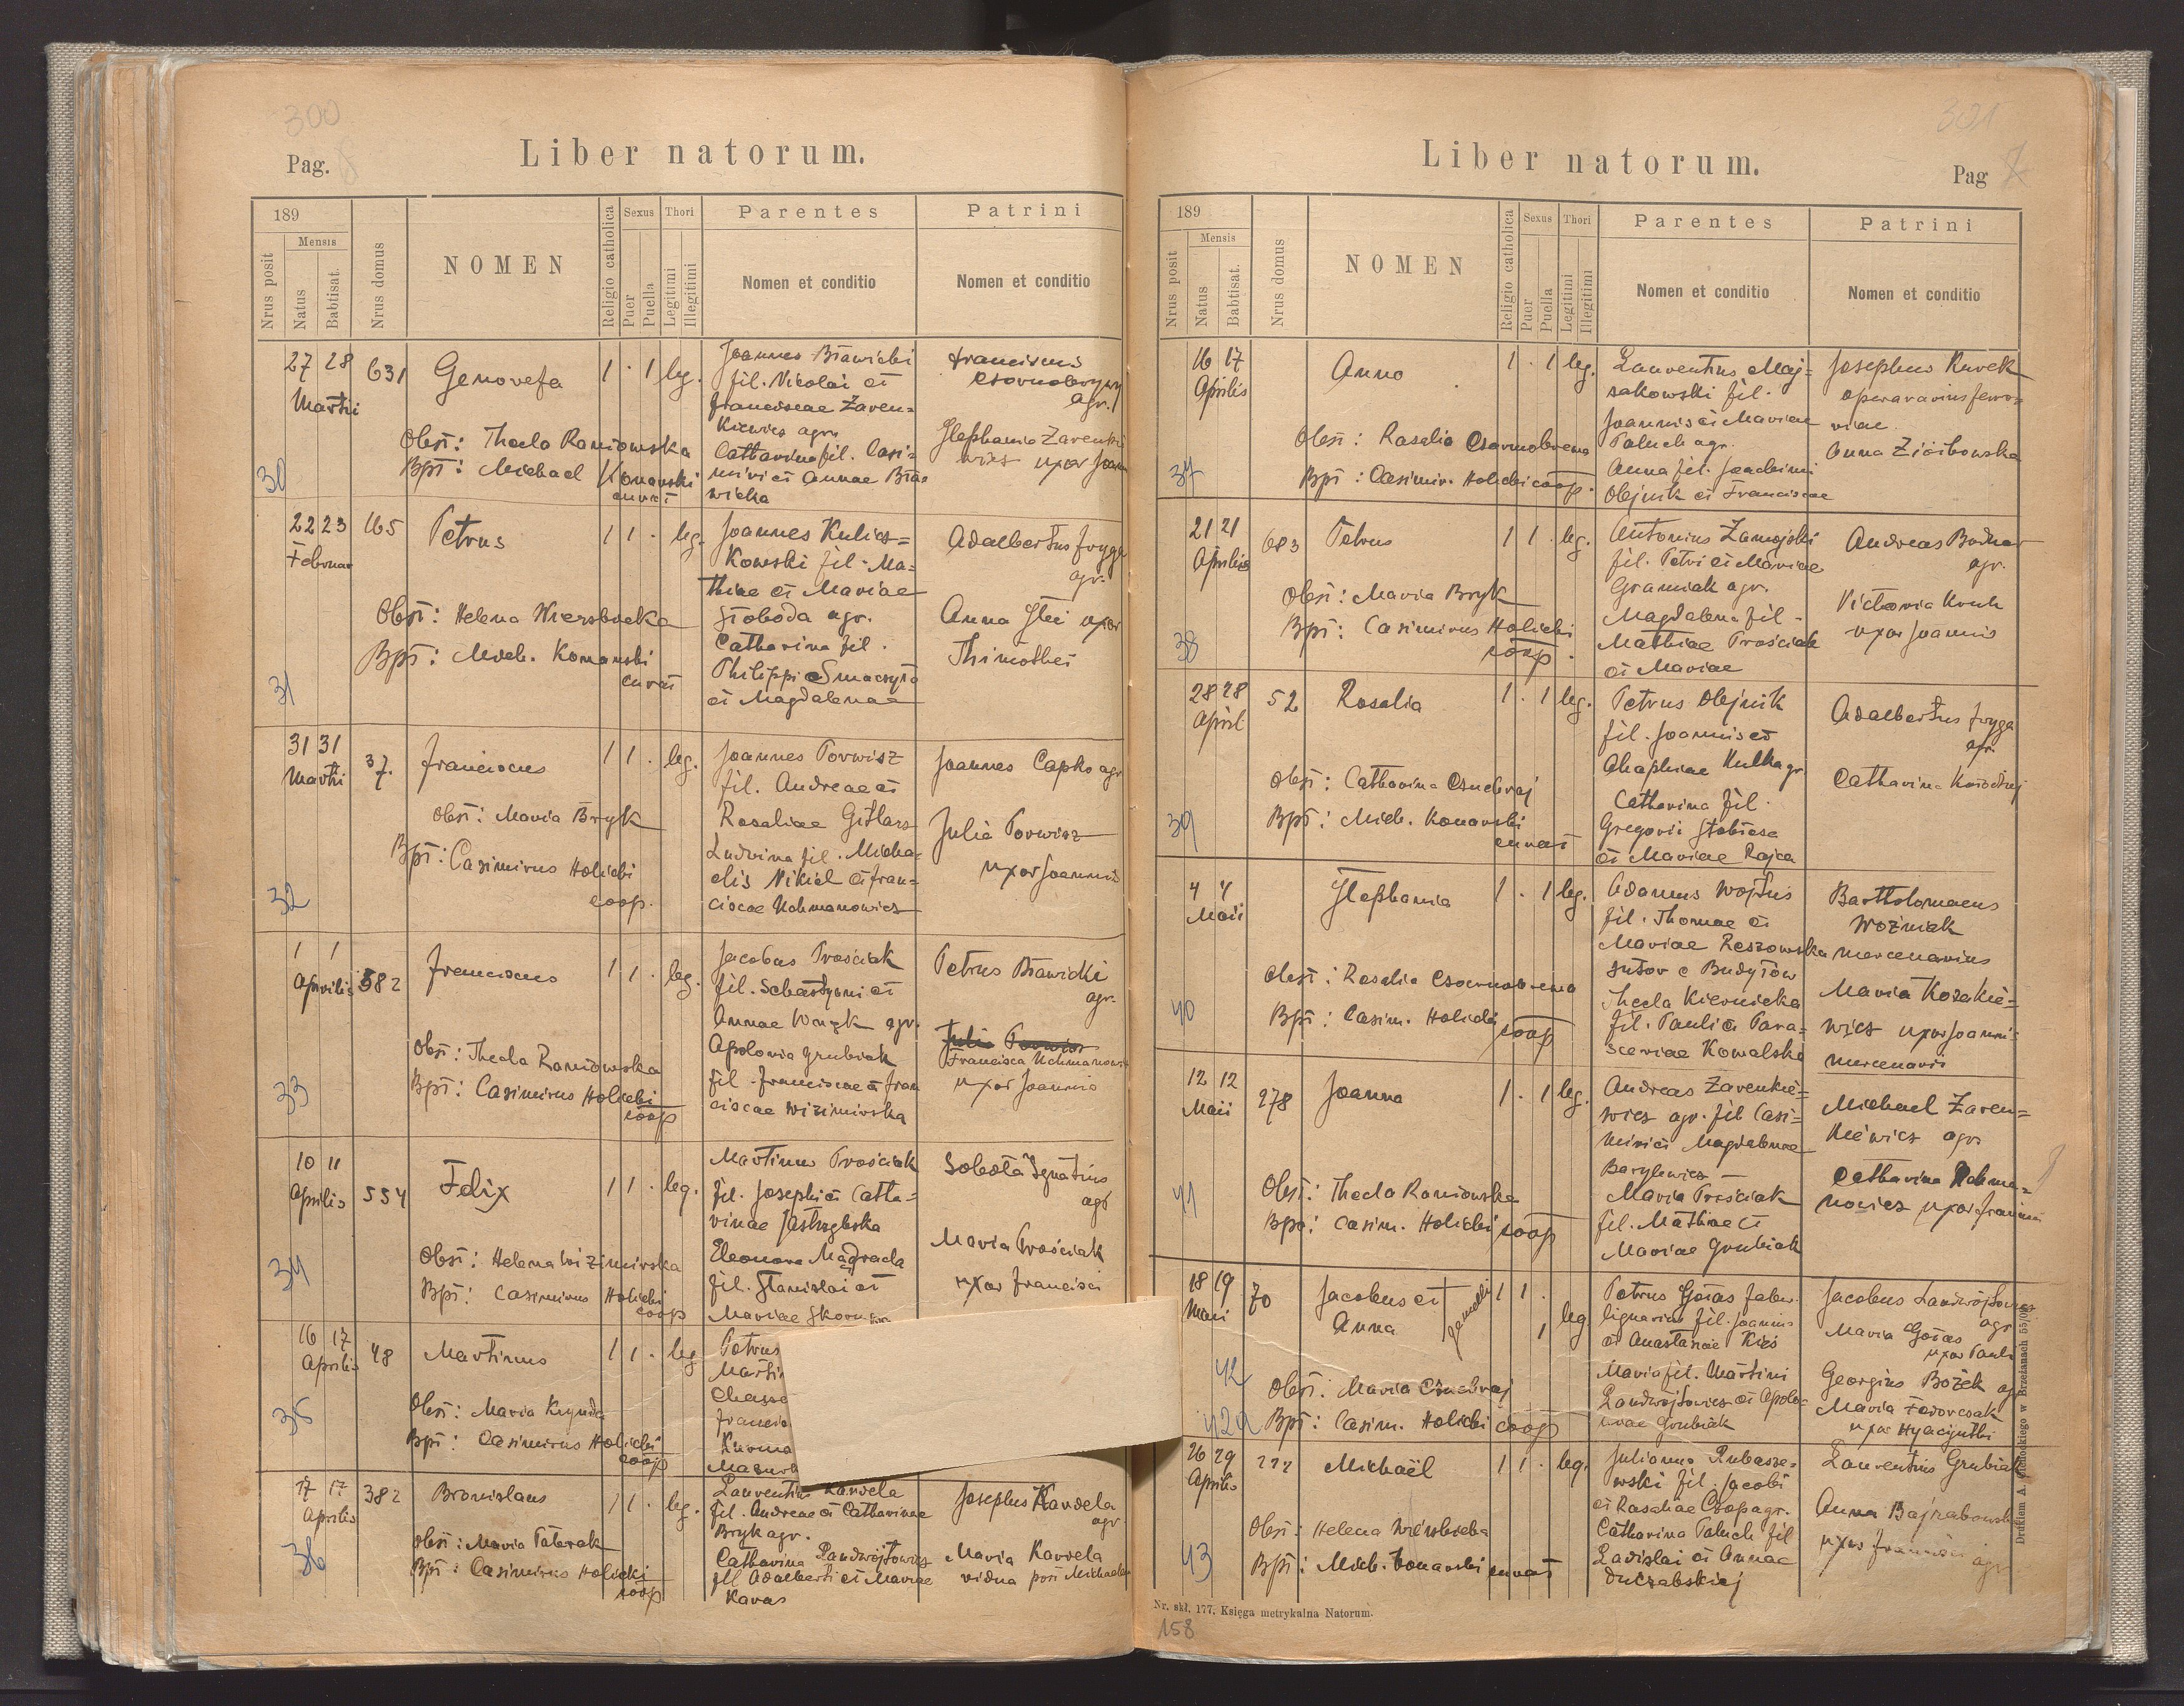 300
Pag.
Liber natorum.
189
Mensis
Nrus posit
Natus
Babtisat.
Nrus domus
NOMEN
Religio catholica
Sexus
Puer
Puella
Thori
Legitimi
Illegitimi
Parentes
Nomen et conditio
Patrini
Nomen et conditio
27 28 631 Genovefa 1 · 1 leg.
Martii
Joannes Bławicki
fil. Nicolai et
Franciscae Zaren=
kiewicz agr.
Catharina fil. Casi=
miri et Annae Bła=
wicka
Franciscus
agr.
Stephania Zarenkie
wicz uxor Joan
Obst: Thecla Raniowska
Bpt: Michael Konarski
curat
30
22 23 165 Petrus 1 1 · leg.
Februar
Joannes Kulicz=
kowski fil. Ma=
thiae et Mariae
Słoboda agr.
Catharina fil.
Philippi Smaczyło
et Magdalenae
Adalbertus Fryga
agr.
Anna uxor
Thimothei
Obst: Helena
Bpt: Mich. Konarski
curat
31
31 31 37. Franciscus 1 1 · leg.
Martii
Joannes Porwisz
fil. Andreae et
Rosaliae Gitlars
Ludwina fil. Micha=
elis Nikiel et Fran=
ciscae Uchmanowicz
Joannes Capko agr
Julia Porwisz
uxor Joannis
Obst: Maria Bryk
Bpt: Casimirus Holicki
coop.
32
1 1 582 Franciscus 1 1 · leg.
Aprilis
Jacobus Prościak
fil. Sebastyani et
Annae agr.
Apolonia Grubiak
fil. Franciscae et Fran
ciscae Wizimirska
Petrus Bławicki
agr.
Julia Porwisz
Francisca Uchmanowi
uxor Joannis
Obst: Thecla Raniowska
Bpt: Casimirus Holicki
coop
33
10 11 554 Felix 1 1 · leg.
Aprilis
Martinus Prościak
fil. Josephi et Catha=
rinae Jastrzębska
Eleonora Mądrada
fil. Stanislai et
Mariae
Sobota Ignatius
agr
Maria Prościak
uxor Francisci
Obst: Helena Wizimirska
Bpt: Casimirus Holicki
coop
34
16 17 48 Martinus 1 1 · leg
Aprilis
Petrus
Marti
Obst: Maria
Bpt: Casimirus Holicki
coop
35
17 17 382 Bronislaus 1 1 · leg.
Aprilis
Laurentius Kardela
fil. Andreae et Catharinae
Bryk agr.
Catharina Landwójtowicz
fil Adalberti et Mariae
Karas
Josephus Kardela
agr.
Maria Kardela
vidua post Michaelem
Obst: Maria Paterak
Bpt: Casimirus Holicki
coop
36
301
Liber natorum.
Pag 7
189
Mensis
Nrus posit
Natus
Babtisat.
Nrus domus
NOMEN
Religio catholica
Sexus
Puer
Puella
Thori
Legitimi
Illegitimi
Parentes
Nomen et conditio
Patrini
Nomen et conditio
16 17 Anna 1 · 1 leg.
Aprilis
Laurentius Maj=
sakowski fil.
Joannis et Mariae
Paluch agr.
Anna fil. Joachimi
Olejnik et Franciscae
Josephus Kurek
operararius ferro=
viae
Anna Ziółkowska
Obst: Rosalia Czarnobrewa
Bpt: Casimir. Holicki coop.
37
21 21 683 Petrus 1 1 · leg.
Aprilis
Antonius Zamojski
fil. Petri et Mariae
Graniak agr.
Magdalena fil.
Mathiae Prościak
et Mariae
Andreas Bodnar
agr.
Victoria Kruk
uxor Joannis
Obst: Maria Bryk
Bpt: Casimirus Holicki
coop.
38
28 28 52 Rosalia 1 · 1 leg.
April
Petrus Olejnik
fil. Joannis et
Ahaphiae Kulka gr
Catharina fil.
Gregorii
et Mariae Rajca
Adalbertus Fryga
agr.
Catharina Kołodziej
Obst: Catharina Csuchraj
Bpt: Mich. Konarski
curat
39
4 4 Stephania 1 · 1 leg.
Maii
Adamus Wojtus
fil. Thomae et
Mariae Reszowska
sutor e Budyłow
Thecla Kiernicka
fil. Pauli et Para=
sceviae Kowalska
Bartholomaeus
Woźniak
mercenarius
Maria Kozakie=
wicz uxor Joannis
mercenarii
Obst: Rosalia Czarnobrewa
Bpt: Casim. Holicki
coop
40
12 12 278 Joanna 1 · 1 leg.
Maii
Andreas Zarenkie=
wicz agr. fil Casi=
miri et Magdalenae
Barylewicz —
Maria Prościak
fil. Mathiae et
Mariae Grubiak
Michael Zaren=
kiewicz agr.
Catharina Uchma=
nowicz uxor Joannis
Obst: Thecla Raniowska
Bpt: Casim. Holicki coop
41
18 19 70 Jacobus et gemelli 1 1 ·
Maii Anna 1 leg
Petrus Goras faber
lignarius fil. Joannis
et Anastasiae Kicś
Maria fil. Martini
Landwójtowicz et Apolo=
niae Grubiak
Jacobus Landwójtowicz
agr
Maria Goras
uxor Pauli
Georgius Bożek agr
Maria Fedorczak
uxor Hyacynthi
42
Obst: Maria Csuchraj
42a Bpt: Casim. Holicki coop
26 29 222 Michaël 1 1 · leg.
Aprilis
Julianus Rubasze=
wski fil. Jacobi
et Rosaliae Czop agr.
Catharina Paluch fil
Ladislai et Annae
Dulczabskiej
Laurentius Grubiak
Anna Bajrakowska
uxor Francisci agr
Obst: Helena
Bpt: Mich. Konarski curat
43
Nr. skł. 177. Księga metrykalna Natorum.
158